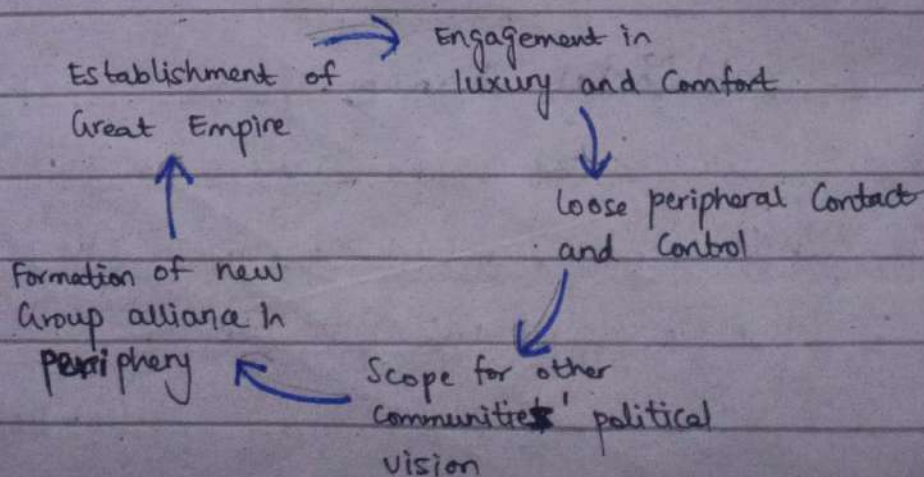 Establishment of
Great Empire
Engagement in
luxury and Comfort
loose peripheral Contact
and Control
Scope for other
communities' political
vision
Formation of new
Group alliance in
periphery